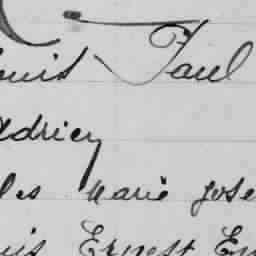 ouis Paul
Adrien
les Marie Jose
uis Ernest Em